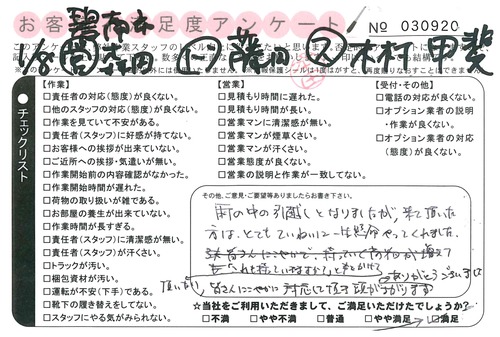 お客様満足度アンケート
№ 030920
碧南市
1/8
藤川 ② 木村 甲斐
チェックリスト
【作業】
□責任者の対応(態度)が良くない。
□他のスタッフの対応(態度)が良くない。
□作業を見ていて不安がある。
□責任者(スタッフ)に好感が持てない。
□お客様への挨拶が出来ていない。
□ご近所への挨拶・気遣いが無い。
□作業開始前の内容確認がなかった。
□作業開始時間が遅れた。
□荷物の取り扱いが雑である。
□お部屋の養生が出来ていない。
□作業時間が長すぎる。
□責任者(スタッフ)に清潔感が無い。
□責任者(スタッフ)が汗くさい。
□トラックが汚い。
□梱包資材が汚い。
□運転が不安(下手)である。
□靴下の履き替えをしてない。
□スタッフにやる気がみられない。
【営業】
□見積もり時間に遅れた。
□見積もり時間が長い。
□営業マンに清潔感が無い。
□営業マンが煙草くさい。
□営業マンが汗くさい。
□営業態度が良くない。
□営業の説明と作業が一致してない。
【受付・その他】
□電話の対応が良くない。
□オプション業者の説明
・作業が良くない。
□オプション業者の対応
(態度)が良くない。
その他、ご意見・ご要望等ありましたらお書き下さい。
雨の中の引越しとなりましたが、来て頂いた
方は、とてもていねいに一生懸命やってくれました。
ありがとうございました
皆さんにこやかに対応して頂き頭が下がります
☆当社をご利用いただきまして、ご満足いただけたでしょうか?
□不満 □やや不満 □普通 □やや満足 □満足